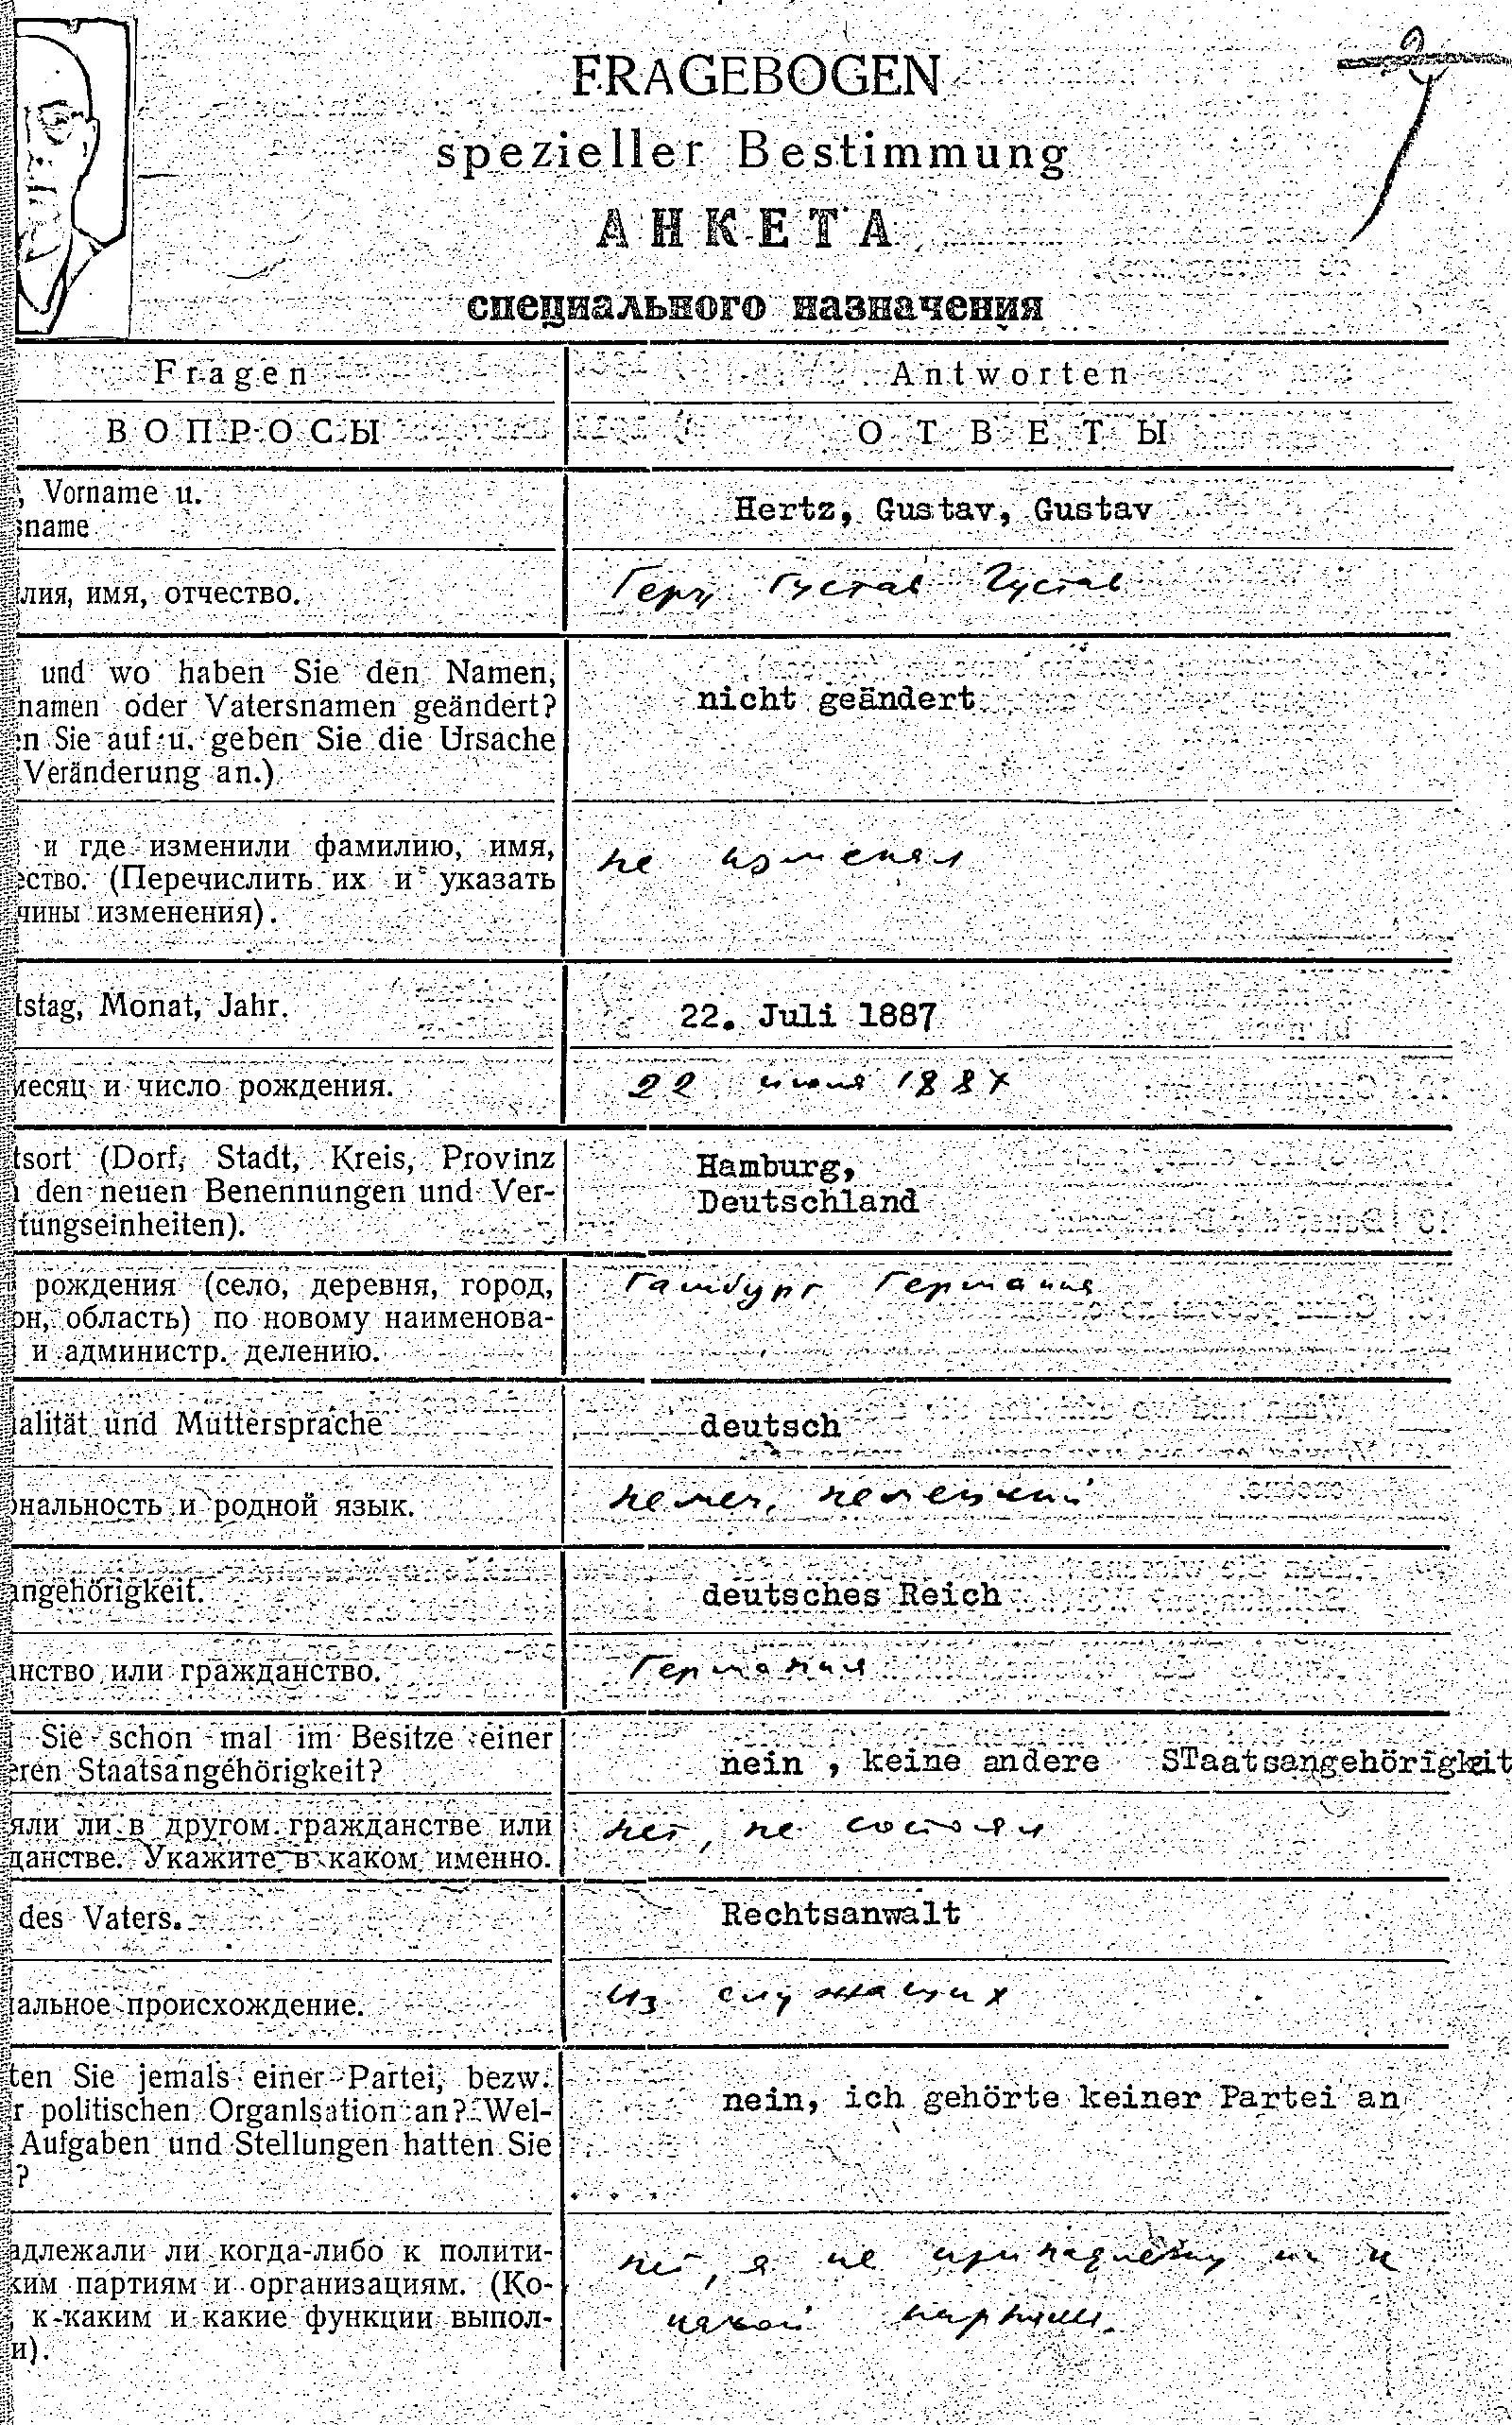 FRAGEBOGEN
spezieller Bestimmung
АНКЕТА
специального назначения
Fragen
Antworten
ВОПРОСЫ
ОТВЕТЫ
, Vorname u.
sname
Hertz, Gustav, Gustav
лия, имя, отчество.
Герц Густав Густав
und wo haben Sie den Namen,
namen oder Vatersnamen geändert?
n Sie auf u. geben Sie die Ursache
Veränderung an.)
nicht geändert
и где изменили фамилию, имя,
ество. (Перечислить их и указать
чины изменения).
не изменял
tstag, Monat, Jahr.
22. Juli 1887
месяц и число рождения.
22 июля 1887
tsort (Dorf, Stadt, Kreis, Provinz
den neuen Benennungen und Ver-
tungseinheiten).
Hamburg,
Deutschland
рождения (село, деревня, город,
он, область) по новому наименова-
и администр. делению.
Гамбург Германия
alität und Muttersprache
deutsch
ональность и родной язык.
немец, немецкий
angehörigkeit.
deutsches Reich
анство или гражданство.
Германия
Sie schon mal im Besitze einer
eren Staatsangehörigkeit?
nein , keine andere STaatsangehörigkeit
яли ли в другом гражданстве или
данстве. Укажите в каком именно.
нет, не состоял
des Vaters.
Rechtsanwalt
альное происхождение.
из служащих
ten Sie jemals einer Partei, bezw.
r politischen Organlsation an? Wel-
Aufgaben und Stellungen hatten Sie
?
nein, ich gehörte keiner Partei an
адлежали ли когда-либо к полити-
ким партиям и организациям. (Ко-
, к каким и какие функции выпол-
и).
нет, я не принадлежу ни к
какой партии.